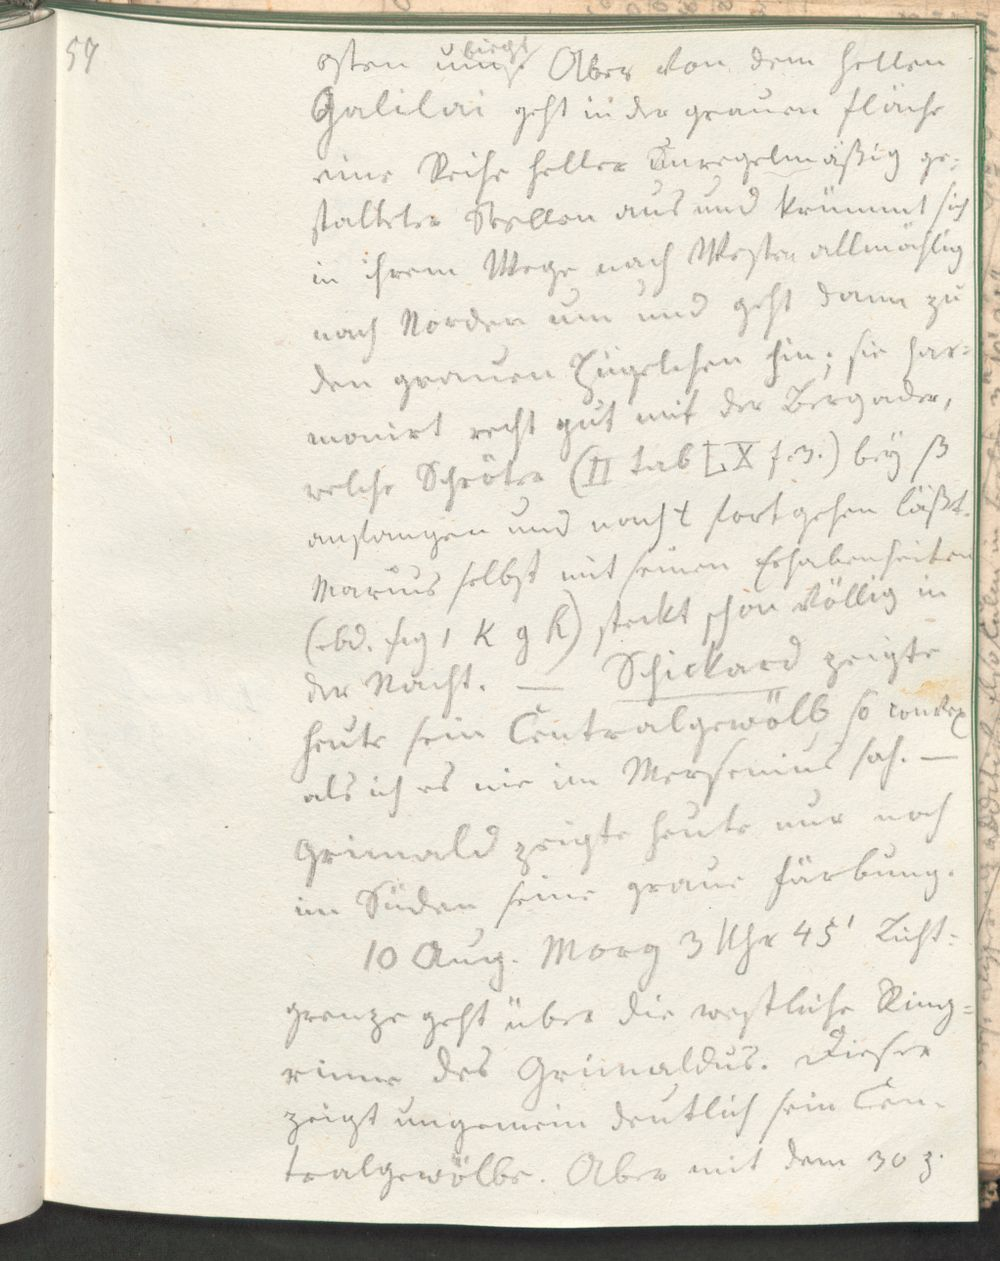 57
osten um biegt. Aber von dem hellen
Galilai geht in der grauen Fläche
eine Reihe heller unregelmäßig ge-
stalteter Stellen aus und krümmt sich
in ihrem Wege nach Westen allmählig
nach Norden um und geht dann zu
den grauen Hügelchen hin; sie har-
monirt recht gut mit der Bergader,
welche Schröter (II tab LX f. 3.) bey β
anfangen und nach t fortgehen läßt.
Marius selbst mit seinen Erhabenheiten
(ebd. fig 1 k g h) steckt schon völlig in
der Nacht. — Schickard zeigte
heute sein Centralgewölb so convex
als ich es nie im Mersenius sah. —
Grimald zeigte heute nur noch
im Süden seine graue Färbung.
10 Aug. Morg 3 Uhr 45' Licht-
grenze geht über die westliche Ring-
rinne des Grimaldus. Dieser
zeigt ungemein deutlich sein Cen-
tralgewölbe. Aber mit dem 30 z.